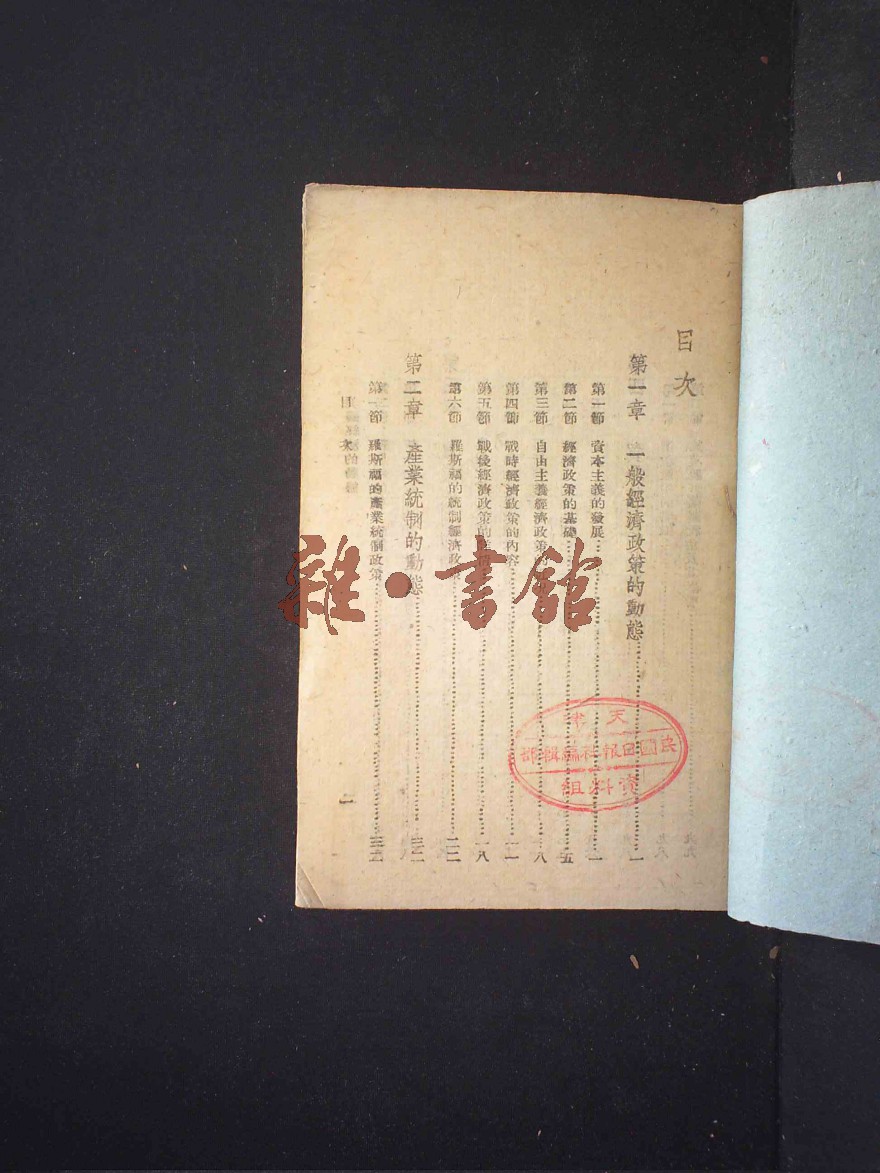 目次
第一章 一般經濟政策的動態 一
第一節 資本主義的發展 一
第二節 經濟政策的基礎 五
第三節 自由主義經濟政策 八
第四節 戰時經濟政策的內容 一一
第五節 戰後經濟政策的 一八
第六節 羅斯福的統制經濟政策 二二
第二章 產業統制的動態 三二
第一節 羅斯福的產業統制政策 三二
目次
一
天津
民國日報社編輯部
資料組
雜·書館